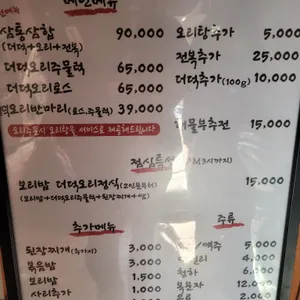 메인메뉴
삼통삼합 90,000
(더덕+오리+전복)
더덕오리주물럭 65,000
더덕오리로스 65,000
오리반마리(로스,주물럭) 39,000
오리주문시 오리탕을 서비스로 제공해드립니다
오리탕추가 5,000
전복추가 25,000
더덕추가(100g) 10,000
해물부추전 15,000
점심특선
보리밥 더덕오리정식(2인분부터) 15,000
(보리밥+더덕오리주물럭+된장찌개+쌈)
추가메뉴
된장찌개 3,000
볶음밥 3,000
보리밥 1,500
사리추가 1,000
주류
/맥주 5,000
4,000
청하 6,000
복분자 12,000
2,000